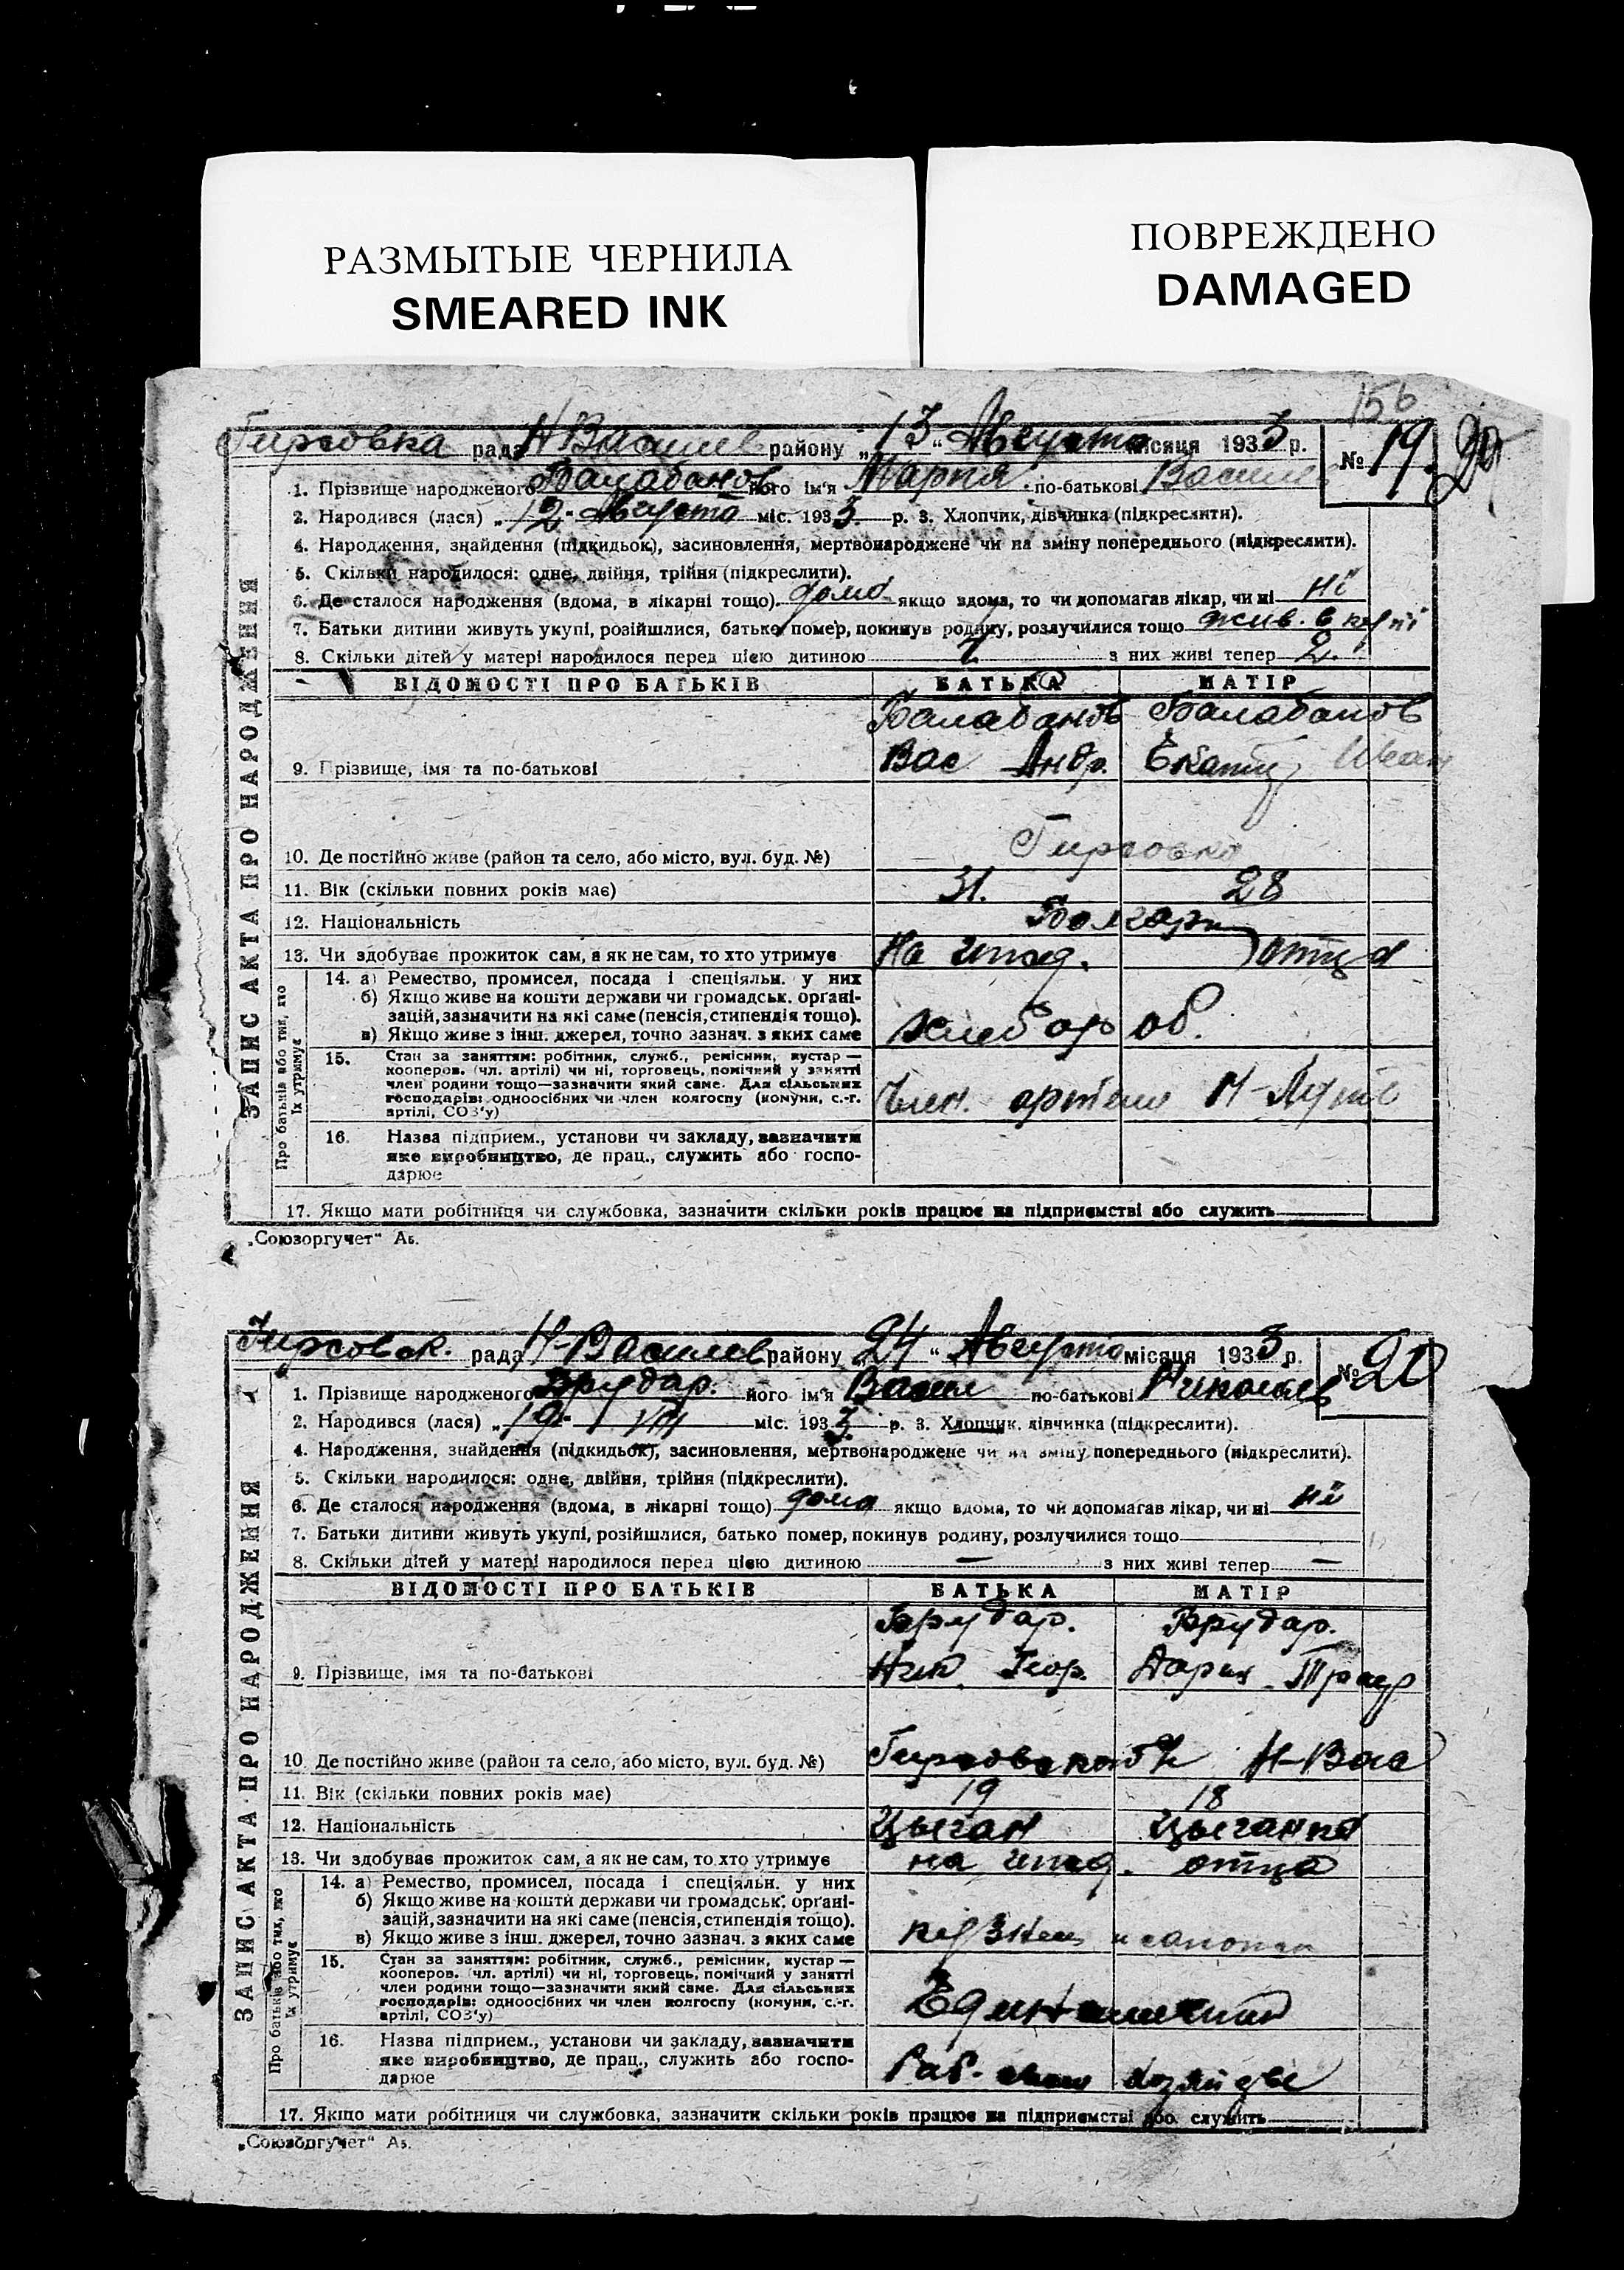 РАЗМЫТЫЕ ЧЕРНИЛА
SMEARED INK
ПОВРЕЖДЕНО
DAMAGED
156
Гирсовка рада Н Васильев району „13“ Августа місяця 1933 р. № 19.
1. Прізвище народженого Балабанов його ім'я Мария по-батькові Васил
2. Народився (лася) „12“ Августа міс. 1933 р. 3. Хлопчик, дівчинка (підкреслити).
4. Народження, знайдення (підкидьок), засиновлення, мертвонароджене чи на зміну попереднього (підкреслити).
5. Скільки народилося: одне, двійня, трійня (підкреслити).
6. Де сталося народження (вдома, в лікарні тощо) дома якщо вдома, то чи допомагав лікар, чи ні ні
7. Батьки дитини живуть укупі, розійшлися, батько помер, покинув родину, розлучилися тощо жив. в купі
8. Скільки дітей у матері народилося перед цією дитиною з них живі тепер 2.
ЗАПИС АКТА ПРО НАРОДЖЕННЯ
ВІДОМОСТІ ПРО БАТЬКІВ БАТЬКА МАТІР
Балабанов Балабанов
9. Прізвище, імя та по-батькові Вас Андр. Екатер Иван
10. Де постійно живе (район та село, або місто, вул. буд. №) Гирсовка
11. Вік (скільки повних років має) 31. 28
12. Національність Болгары
13. Чи здобуває прожиток сам, а як не сам, то хто утримує На ижд. отца
Про батьків або тих, хто їх утримує
14. а) Ремество, промисел, посада і спеціяльн. у них
б) Якщо живе на кошти держави чи громадськ. органі-
зацій, зазначити на які саме (пенсія, стипендія тощо).
в) Якщо живе з інш. джерел, точно зазнач. з яких саме хлебороб.
15. Стан за заняттям: робітник, служб., ремісник, кустар —
кооперов. (чл. артілі) чи ні, торговець, помічний у занятті
член родини тощо—зазначити який саме. Для сільських
господарів: одноосібних чи член колгоспу (комуни, с.-г.
артілі, СОЗ'у) Член. артели Н-Путь
16. Назва підприєм., установи чи закладу, зазначити
яке виробництво, де прац., служить або госпо-
дарює
17. Якщо мати робітниця чи службовка, зазначити скільки років працює на підприємстві або служить
„Союзоргучет“ Аз.
Гирсовск. рада Н-Васильев району „24“ Августа місяця 1933 р. № 20
1. Прізвище народженого Брудар. його ім'я Васил по-батькові Николаев
2. Народився (лася) „19“ VIII міс. 1933 р. 3. Хлопчик, дівчинка (підкреслити).
4. Народження, знайдення (підкидьок), засиновлення, мертвонароджене чи на зміну попереднього (підкреслити).
5. Скільки народилося: одне, двійня, трійня (підкреслити).
6. Де сталося народження (вдома, в лікарні тощо) дома якщо вдома, то чи допомагав лікар, чи ні ні
7. Батьки дитини живуть укупі, розійшлися, батько помер, покинув родину, розлучилися тощо
8. Скільки дітей у матері народилося перед цією дитиною — з них живі тепер —
ЗАПИС АКТА ПРО НАРОДЖЕННЯ
ВІДОМОСТІ ПРО БАТЬКІВ БАТЬКА МАТІР
Брудар. Брудар.
9. Прізвище, імя та по-батькові Ник. Геор. Дария
10. Де постійно живе (район та село, або місто, вул. буд. №) Н-Вас
11. Вік (скільки повних років має) 19 18
12. Національність Цыган Цыганка
13. Чи здобуває прожиток сам, а як не сам, то хто утримує на ижд. отца
Про батьків або тих, хто їх утримує
14. а) Ремество, промисел, посада і спеціяльн. у них
б) Якщо живе на кошти держави чи громадськ. органі-
зацій, зазначити на які саме (пенсія, стипендія тощо).
в) Якщо живе з інш. джерел, точно зазнач. з яких саме
15. Стан за заняттям: робітник, служб., ремісник, кустар —
кооперов. (чл. артілі) чи ні, торговець, помічний у занятті
член родини тощо—зазначити який саме. Для сільських
господарів: одноосібних чи член колгоспу (комуни, с.-г.
артілі, СОЗ'у)
16. Назва підприєм., установи чи закладу, зазначити
яке виробництво, де прац., служить або госпо-
дарює Раб.
17. Якщо мати робітниця чи службовка, зазначити скільки років працює на підприємстві або служить
„Союзоргучет“ Аз.